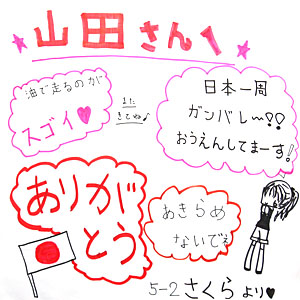 山田さん!
油で走るのが
スゴイ♥
また
きてね♪
日本一周
ガンバレ〜!!
おうえんしてまーす!
ありが
とう
あきらめ
ないでぇ
5-2 さくらより♥